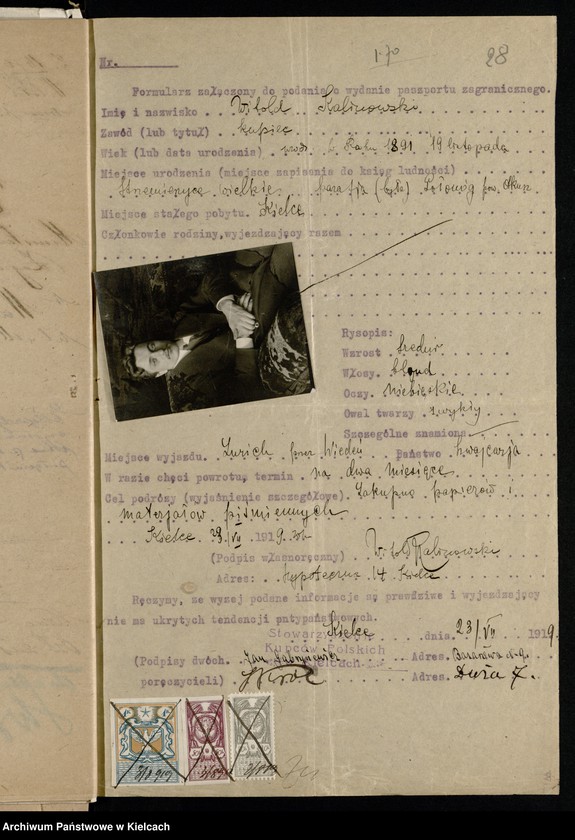 1-70 28
Nr.
Formularz załączony do podania o wydanie paszportu zagranicznego.
Imię i nazwisko . . Witold Kalinowski
Zawód (lub tytuł) . . kupiec
Wiek (lub data urodzenia) . . roku 1891 19 listopada
Miejsce urodzenia (miejsce zapisania do ksiąg ludności)
Strzemieszyce wielkie parafia
Miejsce stałego pobytu. Kielce
Członkowie rodziny, wyjeżdzający razem
Rysopis:
Wzrost średni
Włosy. blond
Oczy. niebieskie
Owal twarzy . zwykły
Szczególne znamiona
Miejsce wyjazdu. Zurich przez Wiedeń Państwo . Szwajcarja
W razie chęci powrotu, termin . na dwa miesiące
Cel podróży (wyjaśnienie szczegółowe) Zakupno papierów i
materjałów piśmiennych
Kielce 23/VII 1919
(Podpis własnoręczny) Witold Kalinowski
Adres: Hypoteczna 14 Kielce
Ręczymy, że wyżej podane informacje są prawdziwe i wyjeżdzający
nie ma ukrytych tendencji antypaństwowych.
Stowarzy
Kielce dnia. 23/VII 1919.
Kupców Polskich
(Podpisy dwóch. Jan Adres.
Kielcach
poręczycieli) Adres. Duża 7.
Archiwum Państwowe w Kielcach
szukajwarchiwach.gov.pl